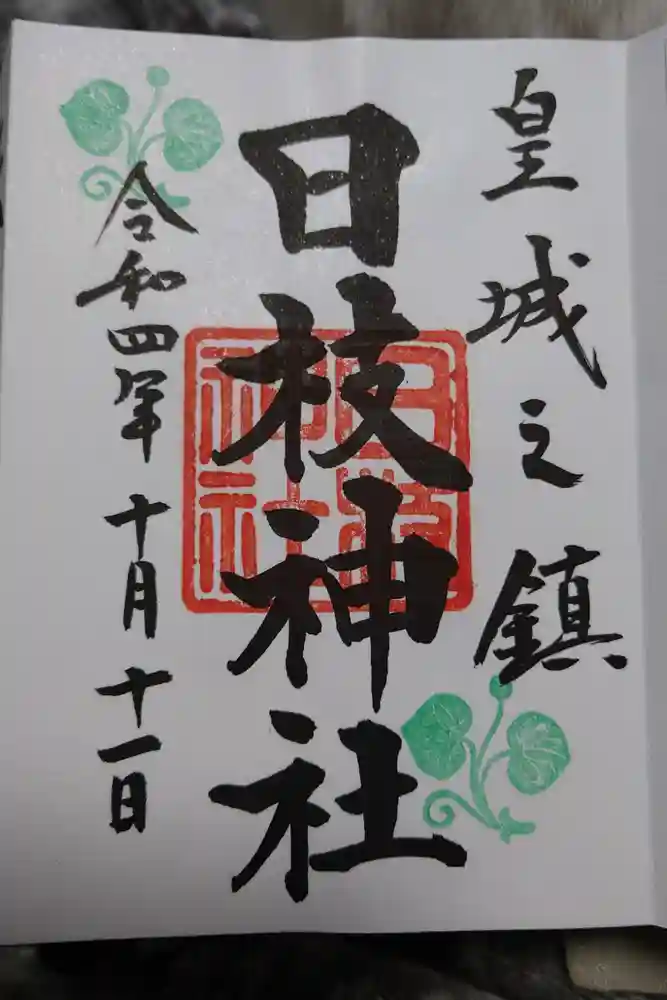 皇城之鎮
日枝神社
日枝神社
令和四年十月十一日